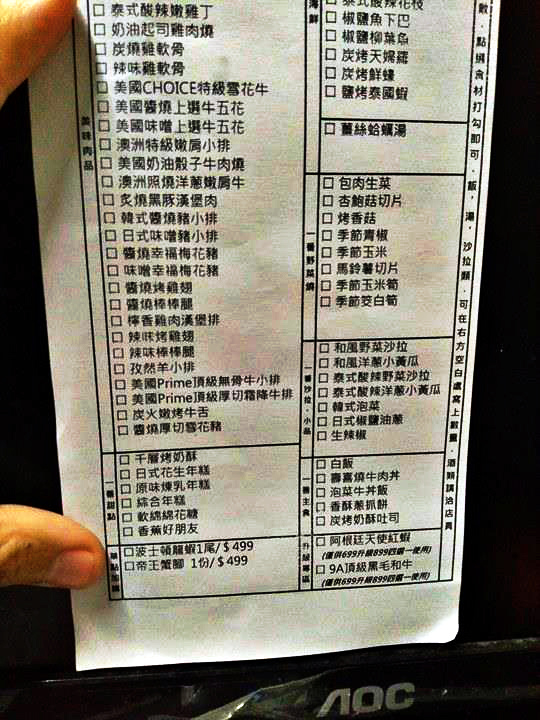 美味肉品
□泰式酸辣嫩雞丁
□奶油起司雞肉燒
□炭燒雞軟骨
□辣味雞軟骨
□美國CHOICE特級雪花牛
□美國醬燒上選牛五花
□美國味噌上選牛五花
□澳洲特級嫩肩小排
□美國奶油骰子牛肉燒
□澳洲照燒洋蔥嫩肩牛
□炙燒黑豚漢堡肉
□韓式醬燒豬小排
□日式味噌豬小排
□醬燒幸福梅花豬
□味噌幸福梅花豬
□醬燒烤雞翅
□醬燒棒棒腿
□檸香雞肉漢堡排
□辣味烤雞翅
□辣味棒棒腿
□孜然羊小排
□美國Prime頂級無骨牛小排
□美國Prime頂級厚切霜降牛排
□炭火嫩烤牛舌
□醬燒厚切雪花豬
一番甜點
□千層烤奶酥
□日式花生年糕
□原味煉乳年糕
□綜合年糕
□軟綿綿花糖
□香蕉好朋友
單點加購
□波士頓龍蝦1尾/$499
□帝王蟹腳 1份/$499
海鮮
□泰式酸辣花枝
□椒鹽魚下巴
□椒鹽柳葉魚
□炭烤天婦羅
□炭烤鮮蠔
□鹽烤泰國蝦
□薑絲蛤蠣湯
一番野菜燒
□包肉生菜
□杏鮑菇切片
□烤香菇
□季節青椒
□季節玉米
□馬鈴薯切片
□季節玉米筍
□季節茭白筍
一番沙拉．小品
□和風野菜沙拉
□和風洋蔥小黃瓜
□泰式酸辣野菜沙拉
□泰式酸辣洋蔥小黃瓜
□韓式泡菜
□日式椒鹽油蔥
□生辣椒
一番主食
□白飯
□壽喜燒牛肉丼
□泡菜牛丼飯
□香酥蔥抓餅
□炭烤奶酥吐司
升級專區
□阿根廷天使紅蝦
(僅供699升級899四選一使用)
□9A頂級黑毛和牛
(僅供699升級899四選一使用)
點選食材打勾即可．飯．湯．沙拉類．可在右方空白處寫上數量．酒類請洽店員
AOC